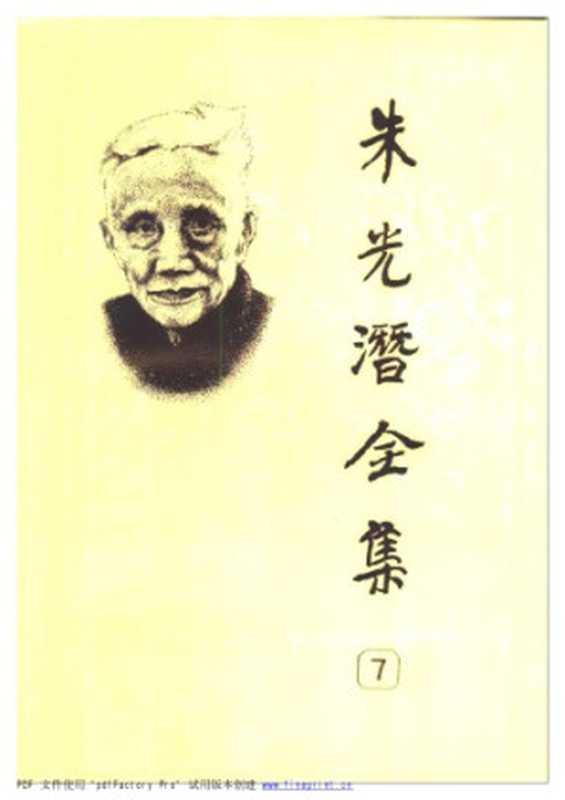 朱光潛全集
7
PDF 文件使用 "pdfFactory Pro" 试用版本创建 www.fineprint.cn